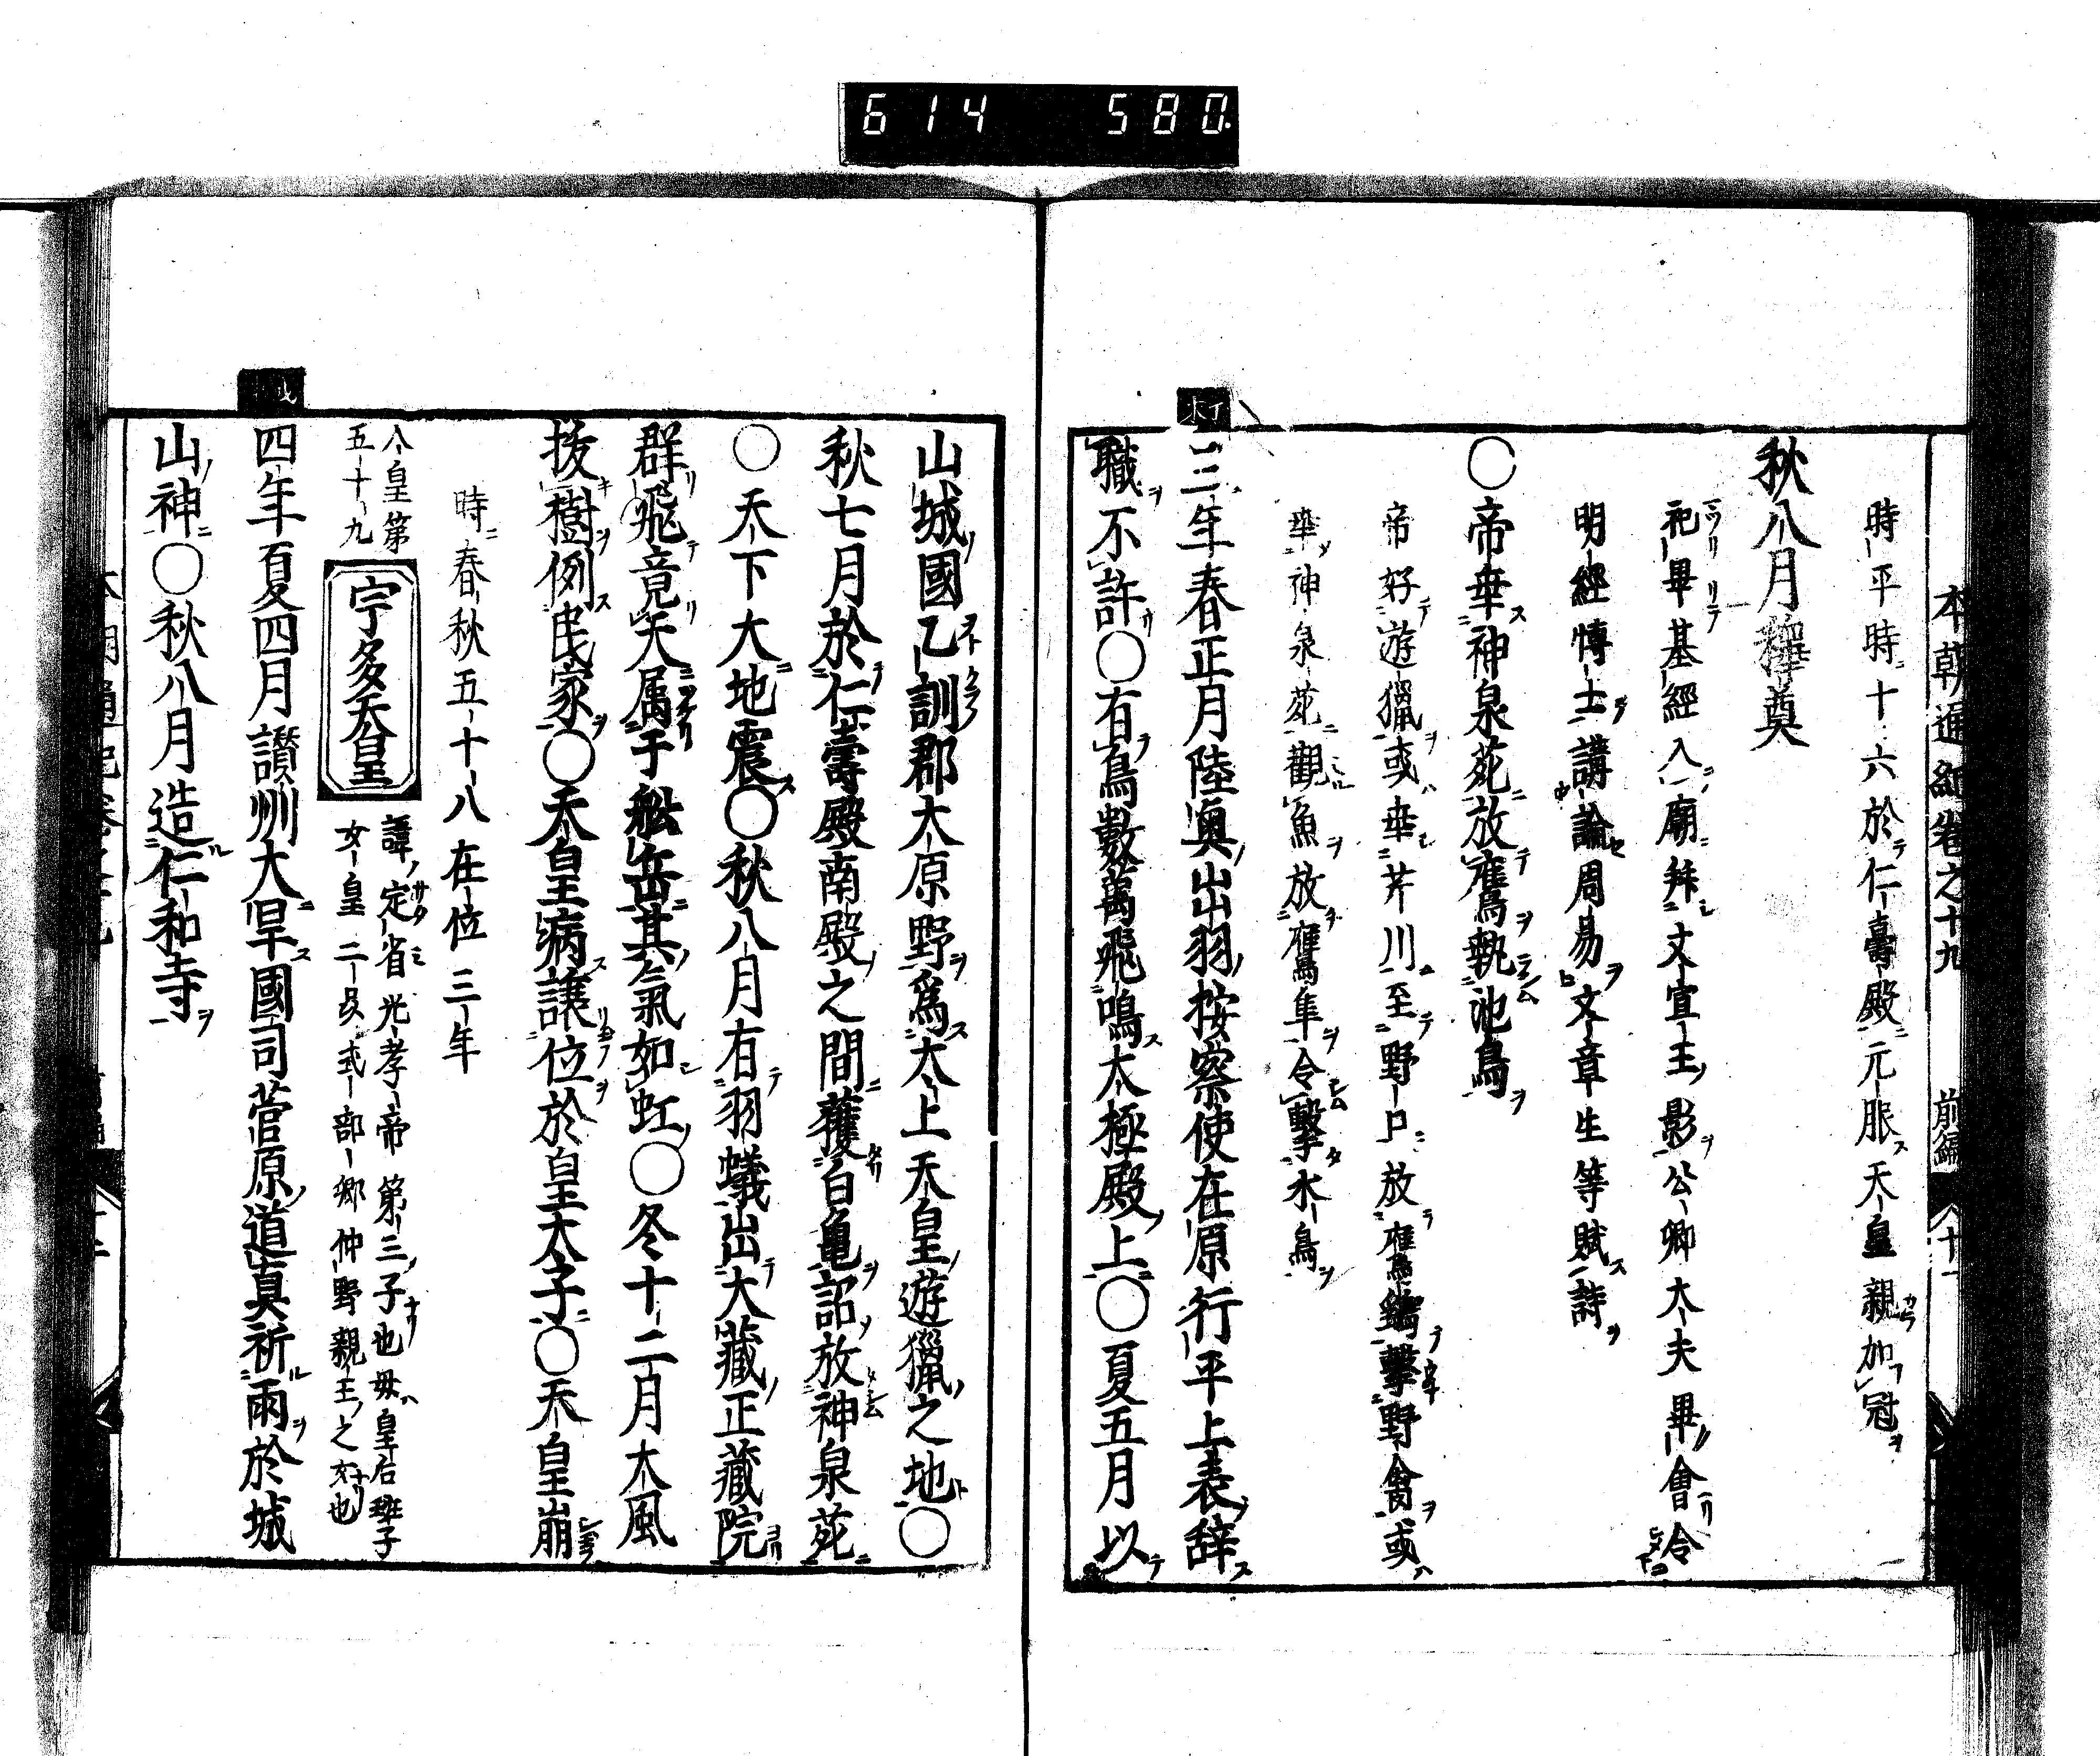 614 580
本朝通紀卷之十九 前編 十一
時平時十六於仁壽殿元服天皇親加冠
秋八月釋奠
祀畢基經入廟拜文宣王影公卿大夫畢會令
明經博士講論周易文章生等賦詩
〇帝幸神泉苑放鷹執池鳥
帝好遊獵或幸芹川至野口放鷹鷂擊野禽或
幸神泉苑觀魚放鷹隼令擊水鳥
丁未
三年春正月陸奥出羽按察使在原行平上表辞
職不許〇有鳥數萬飛鳴大極殿上〇夏五月以
山城國乙訓郡大原野爲太上天皇遊獵之地〇
秋七月於仁壽殿南殿之間獲白亀詔放神泉苑
〇天下大地震〇秋八月有羽蟻出大藏正藏院
群飛竟天属于舩岳其氣如虹〇冬十二月大風
拔樹倒民家〇天皇病譲位於皇太子〇天皇崩
時春秋五十八在位三年
人皇第五十九
宇多天皇
諱定省光孝帝第三子也母皇后班子
女皇二品式部卿仲野親王之女也
四年夏四月讃州大旱國司菅原道真祈雨於城
山神〇秋八月造仁和寺